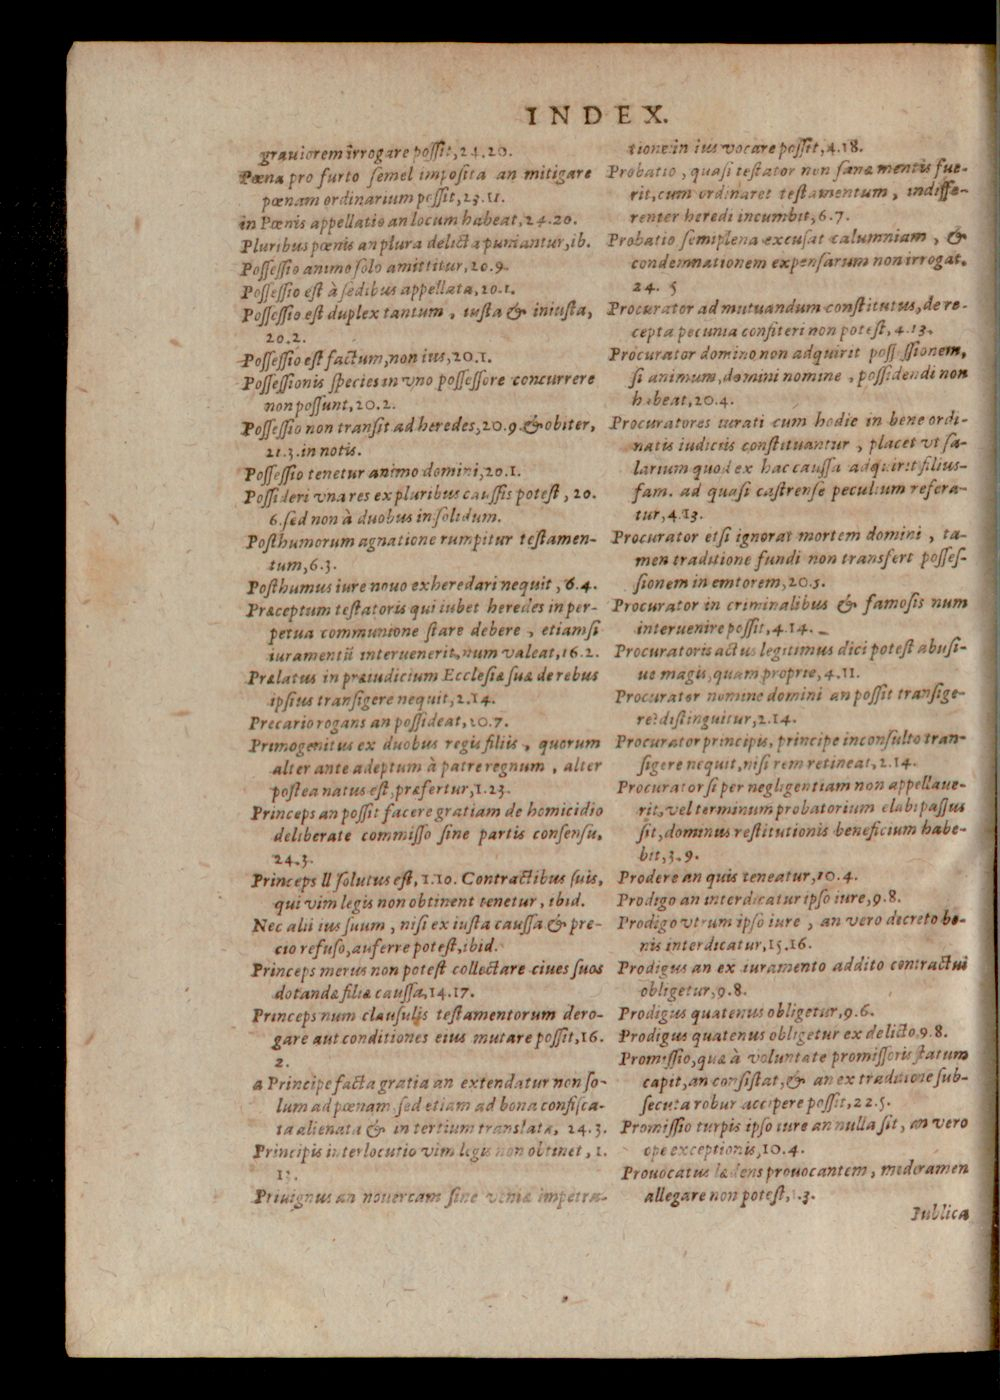 INDEX.
grauiorem irrogare possit, 24.20.
Pœna pro furto semel imposita an mitigare
pœnam ordinarium possit, 23.11.
in Pœnis appellatio an locum habeat, 24.20.
Pluribus pœnis an plura delicta puniantur, ib.
Possessio animo solo amittitur, 20.9.
Possessio est à sedibus appellata, 20.1.
Possessio est duplex tantum, iusta & iniusta,
20.2.
Possessio est factum, non ius, 20.1.
Possessionis species in vno possessore concurrere
non possunt, 20.2.
Possessio non transit ad heredes, 20.9. & obiter,
21.3. in notis.
Possessio tenetur animo domini, 20.1.
Possideri vna res ex pluribus caussis potest, 20.
6. sed non à duobus in solidum.
Posthumorum agnatione rumpitur testamen-
tum, 6.3.
Posthumus iure nouo exheredari nequit, 6.4.
Præceptum testatoris qui iubet heredes in per-
petua communione stare debere, etiamsi
iuramentū interuenerit, num valeat, 16.2.
Prælatus in præiudicium Ecclesiæ suæ de rebus
ipsius transigere nequit, 2.14.
Precario rogans an possideat, 20.7.
Primogenitus ex duobus regis filiis, quorum
alter ante adeptum à patre regnum, alter
postea natus est, præfertur, 1.23.
Princeps an possit facere gratiam de homicidio
deliberate commisso sine partis consensu,
24.3.
Princeps ll solutus est, 1.10. Contractibus suis,
qui vim legis non obtinent tenetur, ibid.
Nec alii ius suum, nisi ex iusta caussa & pre-
cio refuso, auferre potest, ibid.
Princeps merus non potest collectare ciues suos
dotandæ filiæ caussa, 14.17.
Princeps num clausulis testamentorum dero-
gare aut conditiones eius mutare possit, 16.
2.
a Principe facta gratia an extendatur non so-
lum ad pœnam, sed etiam ad bona confisca-
ta alienata & in tertium translata, 24.3.
Principis interlocutio vim legis non obtinet, 1.
Priuignus an nouercam sine venia impetra-
tione in ius vocare possit, 4.18.
Probatio, quasi testator non sanæ mentis fue-
rit, cum ordinaret testamentum, indiffe-
renter heredi incumbit, 6.7.
Probatio semiplena excusat calumniam, &
condemnationem expensarum non irrogat.
24. 5
Procurator ad mutuandum constitutus, de re-
cepta pecunia confiteri non potest, 4.13.
Procurator domino non adquirit possessionem,
si animum, domini nomine, possidendi non
habeat, 20.4.
Procuratores iurati cum hodie in bene ordi-
natis iudiciis constituantur, placet vt sa-
larium quod ex hac caussa adquirit filius-
fam. ad quasi castrense peculium refera-
tur, 4.13.
Procurator etsi ignorat mortem domini, ta-
men traditione fundi non transfert posses-
sionem in emtorem, 20.5.
Procurator in criminalibus & famosis num
interuenire possit, 4.14.
Procuratoris actus legitimus dici potest abusi-
ue magis, quam proprie, 4.11.
Procurator nomine domini an possit transige-
re? distinguitur, 2.14.
Procurator principis, principe inconsulto tran-
sigere nequit, nisi rem retineat, 2.14.
Procurator si per negligentiam non appellaue-
rit, vel terminum probatorium elabi passus
sit, dominus restitutionis beneficium habe-
bit, 3.9.
Prodere an quis teneatur, 10.4.
Prodigo an interdicatur ipso iure, 9.8.
Prodigo vtrum ipso iure, an vero decreto bo-
nis interdicatur, 15.16.
Prodigus an ex iuramento addito contractui
obligetur, 9.8.
Prodigus quatenus obligetur, 9.6.
Prodigus quatenus obligetur ex delicto, 9.8.
Promissio, quæ à voluntate promissoris statum
capit, an consistat, & an ex traditione sub-
secuta robur accipere possit, 22.5.
Promissio turpis ipso iure an nulla sit, an vero
ope exceptionis, 10.4.
Prouocatus lædens prouocantem, moderamen
allegare non potest, 1.3.
Publica